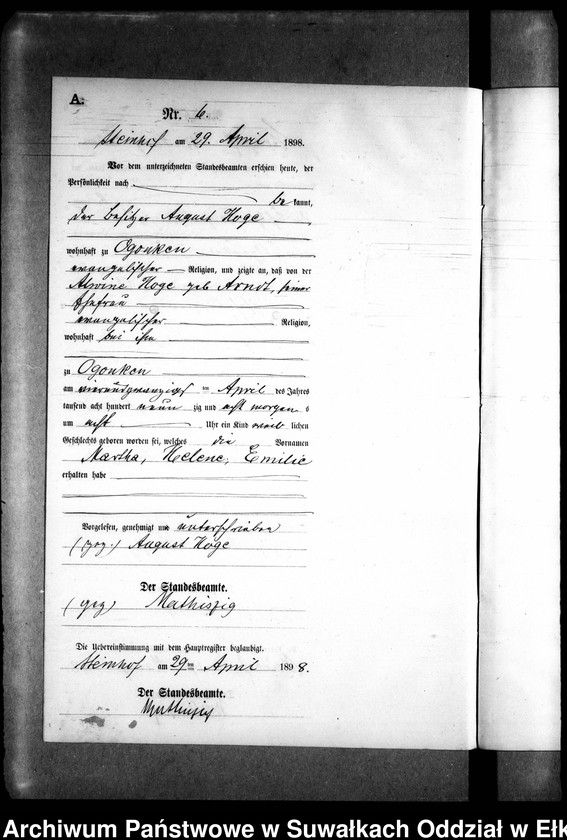 A.
Nr. 6.
Steinhof am 29. April 1898.
Vor dem unterzeichneten Standesbeamten erschien heute, der
Persönlichkeit nach
be kannt,
der Besitzer August Hoge
wohnhaft zu Ogonken
evangelischer Religion, und zeigte an, daß von der
Alwine Hoge geb Arndt, seiner
Ehefrau
evangelischer Religion,
wohnhaft bei ihm
zu Ogonken
am vierundzwanzigsten April des Jahres
tausend acht hundert neun zig und acht morgens
um acht Uhr ein Kind weib lichen
Geschlechts geboren worden sei, welches die Vornamen
Martha, Helene, Emilie
erhalten habe
Vorgelesen, genehmigt und unterschrieben
(gez.) August Hoge
Der Standesbeamte.
(gez)
Die Uebereinstimmung mit dem Hauptregister beglaubigt.
Steinhof am 29ten April 1898.
Der Standesbeamte.
Archiwum Państwowe w Suwałkach Oddział w Ełk